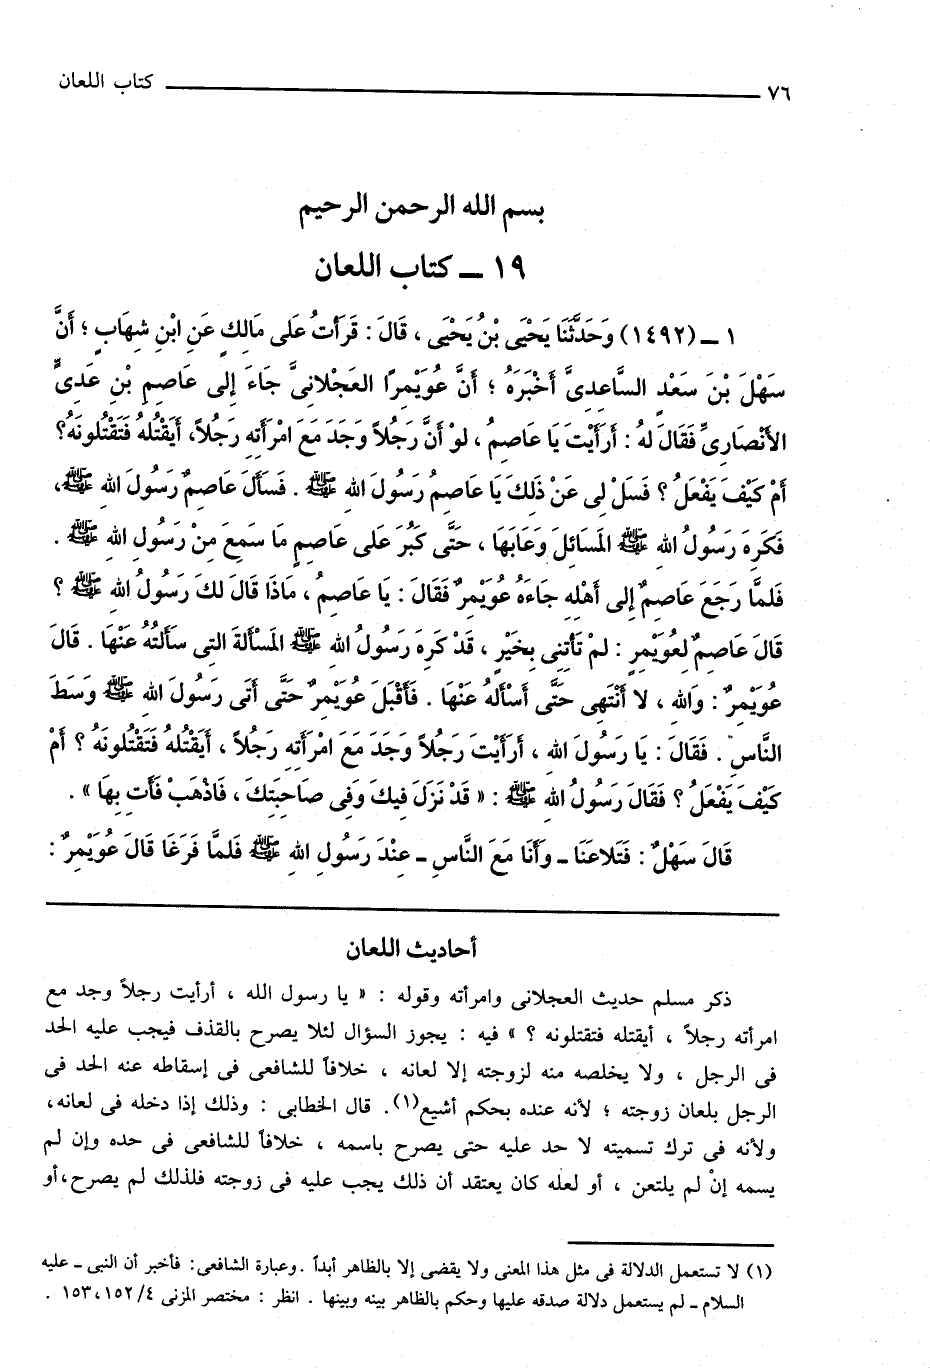 ٧٦ كتاب اللعان
بسم الله الرحمن الرحيم
١٩ ــ كتاب اللعان
١ ــ (١٤٩٢) وَحَدَّثَنَا يَحْيَى بْنُ يَحْيَى ، قَالَ : قَرَأتُ عَلى مَالِكٍ عَنِ ابْنِ شِهَابٍ ؛ أَنَّ
سَهْلَ بْنَ سَعْدٍ السَّاعِدِىَّ أَخْبَرَهُ ؛ أَنَّ عُوَيْمِرًا العَجْلانِىَّ جَاءَ إِلى عَاصِمِ بْنِ عَدِىٍّ
الأَنْصَارِىِّ فَقَالَ لهُ : أَرَأَيْتَ يَا عَاصِمُ ، لوْ أَنَّ رَجُلاً وَجَدَ مَعَ امْرَأَتِهِ رَجُلاً، أَيَقْتُلهُ فَتَقْتُلونَهُ؟
أَمْ كَيْفَ يَفْعَلُ ؟ فَسَلْ لِى عَنْ ذَلِكَ يَا عَاصِمُ رَسُولَ اللهِ ﷺ . فَسَأَلَ عَاصِمٌ رَسُولَ اللهِ ﷺ،
فَكَرِهَ رَسُولُ اللهِ ﷺ المَسَائِلَ وَعَابَهَا ، حَتَّى كَبُرَ عَلى عَاصِمٍ مَا سَمِعَ مِنْ رَسُولِ اللهِ ﷺ .
فَلمَّا رَجَعَ عَاصِمٌ إِلى أَهْلِهِ جَاءَهُ عُوَيْمِرٌ فَقَالَ : يَا عَاصِمُ ، مَاذَا قَالَ لكَ رَسُولُ اللهِ ﷺ ؟
قَالَ عَاصِمٌ لعُوَيْمِرٍ : لمْ تَأتِنِى بِخَيْرٍ ، قَدْ كَرِهَ رَسُولُ اللهِ ﷺ المَسْأَلةَ التِى سَأَلتُهُ عَنْهَا . قَالَ
عُوَيْمِرٌ : وَاللهِ ، لا أَنْتَهِى حَتَّى أَسْأَلهُ عَنْهَا . فَأَقْبَلَ عُوَيْمِرٌ حَتَّى أَتَى رَسُولَ اللهِ ﷺ وَسَطَ
النَّاسِ . فَقَالَ : يَا رَسُولَ اللهِ ، أَرَأَيْتَ رَجُلاً وَجَدَ مَعَ امْرَأَتِهِ رَجُلاً ، أَيَقْتُلهُ فَتَقْتُلونَهُ ؟ أَمْ
كَيْفَ يَفْعَلُ ؟ فَقَالَ رَسُولُ اللهِ ﷺ : « قَدْ نَزَلَ فِيكَ وَفِى صَاحِبَتِكَ ، فَاذْهَبْ فَأتِ بِهَا » .
قَالَ سَهْلٌ : فَتَلاعَنَا ــ وَأَنَا مَعَ النَّاسِ ــ عِنْدَ رَسُولِ اللهِ ﷺ فَلمَّا فَرَغَا قَالَ عُوَيْمِرٌ :
أحاديث اللعان
ذكر مسلم حديث العجلانى وامرأته وقوله : « يا رسول الله ، أرأيت رجلاً وجد مع
امرأته رجلاً ، أيقتله فتقتلونه ؟ » فيه : يجوز السؤال لئلا يصرح بالقذف فيجب عليه الحد
فى الرجل ، ولا يخلصه منه لزوجته إلا لعانه ، خلافاً للشافعى فى إسقاطه عنه الحد فى
الرجل بلعان زوجته ؛ لأنه عنده بحكم أشيع(١). قال الخطابى : وذلك إذا دخله فى لعانه،
ولأنه فى ترك تسميته لا حد عليه حتى يصرح باسمه ، خلافاً للشافعى فى حده وإن لم
يسمه إنْ لم يلتعن ، أو لعله كان يعتقد أن ذلك يجب عليه فى زوجته فلذلك لم يصرح،أو
(١) لا تستعمل الدلالة فى مثل هذا المعنى ولا يقضى إلا بالظاهر أبداً .وعبارة الشافعى: فأخبر أن النبى ــ عليه
السلام ــ لم يستعمل دلالة صدقه عليها وحكم بالظاهر بينه وبينها . انظر : مختصر المزنى ٤/ ١٥٢، ١٥٣ .